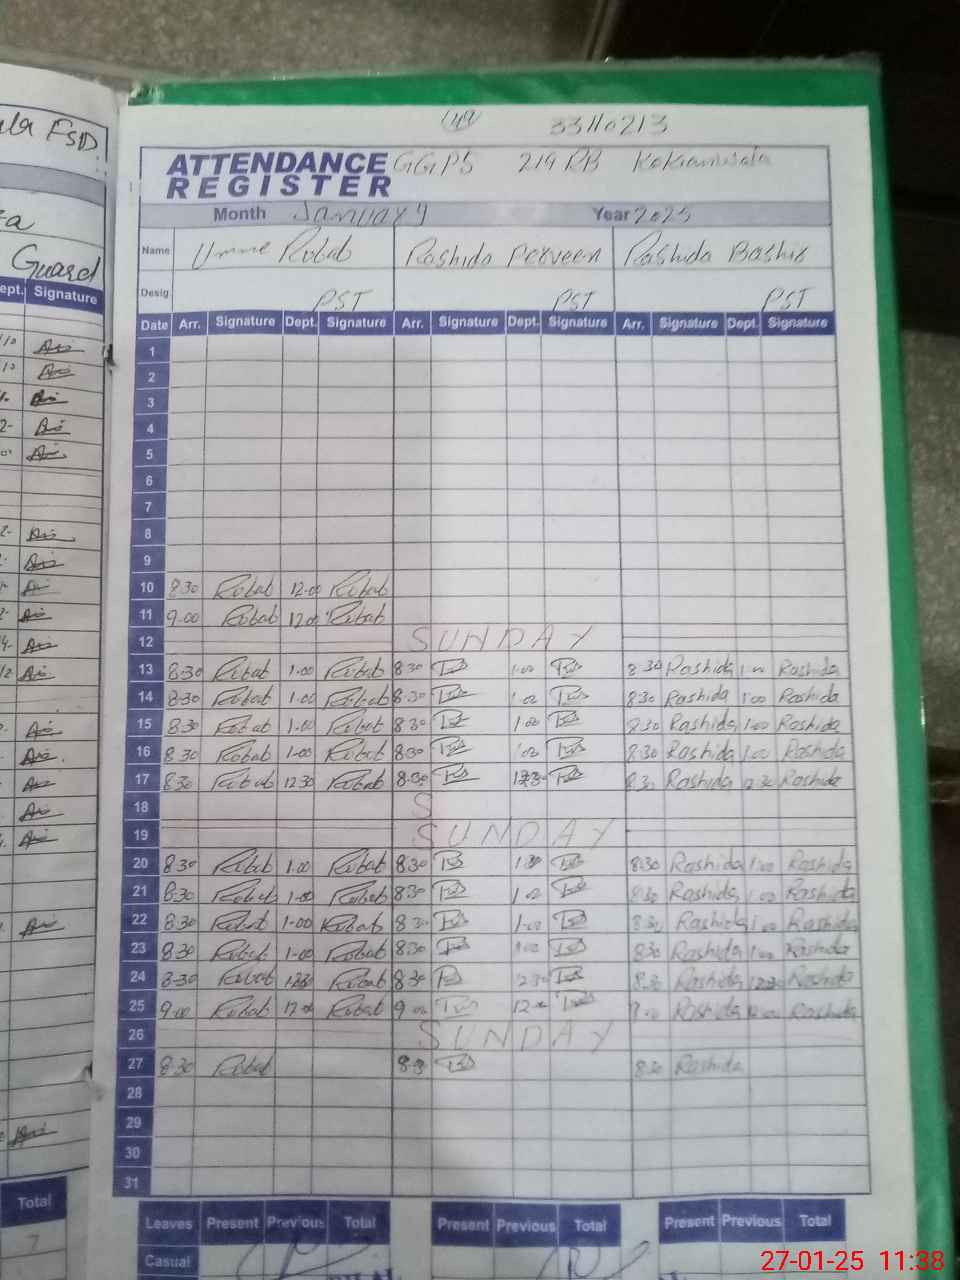 149 33110213
FSD.
ATTENDANCE GGPS 219 RB Kokianwala
REGISTER
Month January Year 2025
Name Umme Robab Rashida Perveen Rashida Bashir
Guard
Desig. PST PST PST
ept. Signature
Date Arr. Signature Dept. Signature Arr. Signature Dept. Signature Arr. Signature Dept. Signature
1
2
3
4
5
6
7
8
9
10 8.30 Robab 12.00 Robab
11 9.00 Robab 12.00 Robab
12 SUNDAY
13 8.30 Robab 1.00 Robab 8.30 1.00 8.30 Rashida 1.00 Rashida
14 8.30 Robab 1.00 Robab 8.30 1.00 8.30 Rashida 1.00 Rashida
15 8.30 Robab 1.00 Robab 8.30 1.00 8.30 Rashida 1.00 Rashida
16 8.30 Robab 1.00 Robab 8.30 1.00 8.30 Rashida 1.00 Rashida
17 8.30 Robab 12.30 Robab 8.30 12.30 8.30 Rashida 12.30 Rashida
18 S
19 SUNDAY
20 8.30 Robab 1.00 Robab 8.30 8.30 Rashida 1.00 Rashida
21 8.30 Robab 1.00 Robab 8.30 1.00 8.30 Rashida 1.00 Rashida
22 8.30 Robab 1.00 Robab 8.30 1.00 8.30 Rashida 1.00 Rashida
23 8.30 Robab 1.00 Robab 8.30 1.00 8.30 Rashida 1.00 Rashida
24 8.30 Robab 12.30 Robab 8.30 12.30 8.30 Rashida 12.30 Rashida
25 9.00 Robab 12.00 Robab 9.00 12.00 9.00 Rashida 12.00 Rashida
26 SUNDAY
27 8.30 Robab 8.30 8.30 Rashida
28
29
30
31
Total
7
Leaves Present Previous Total Present Previous Total Present Previous Total
Casual
27-01-25 11:38